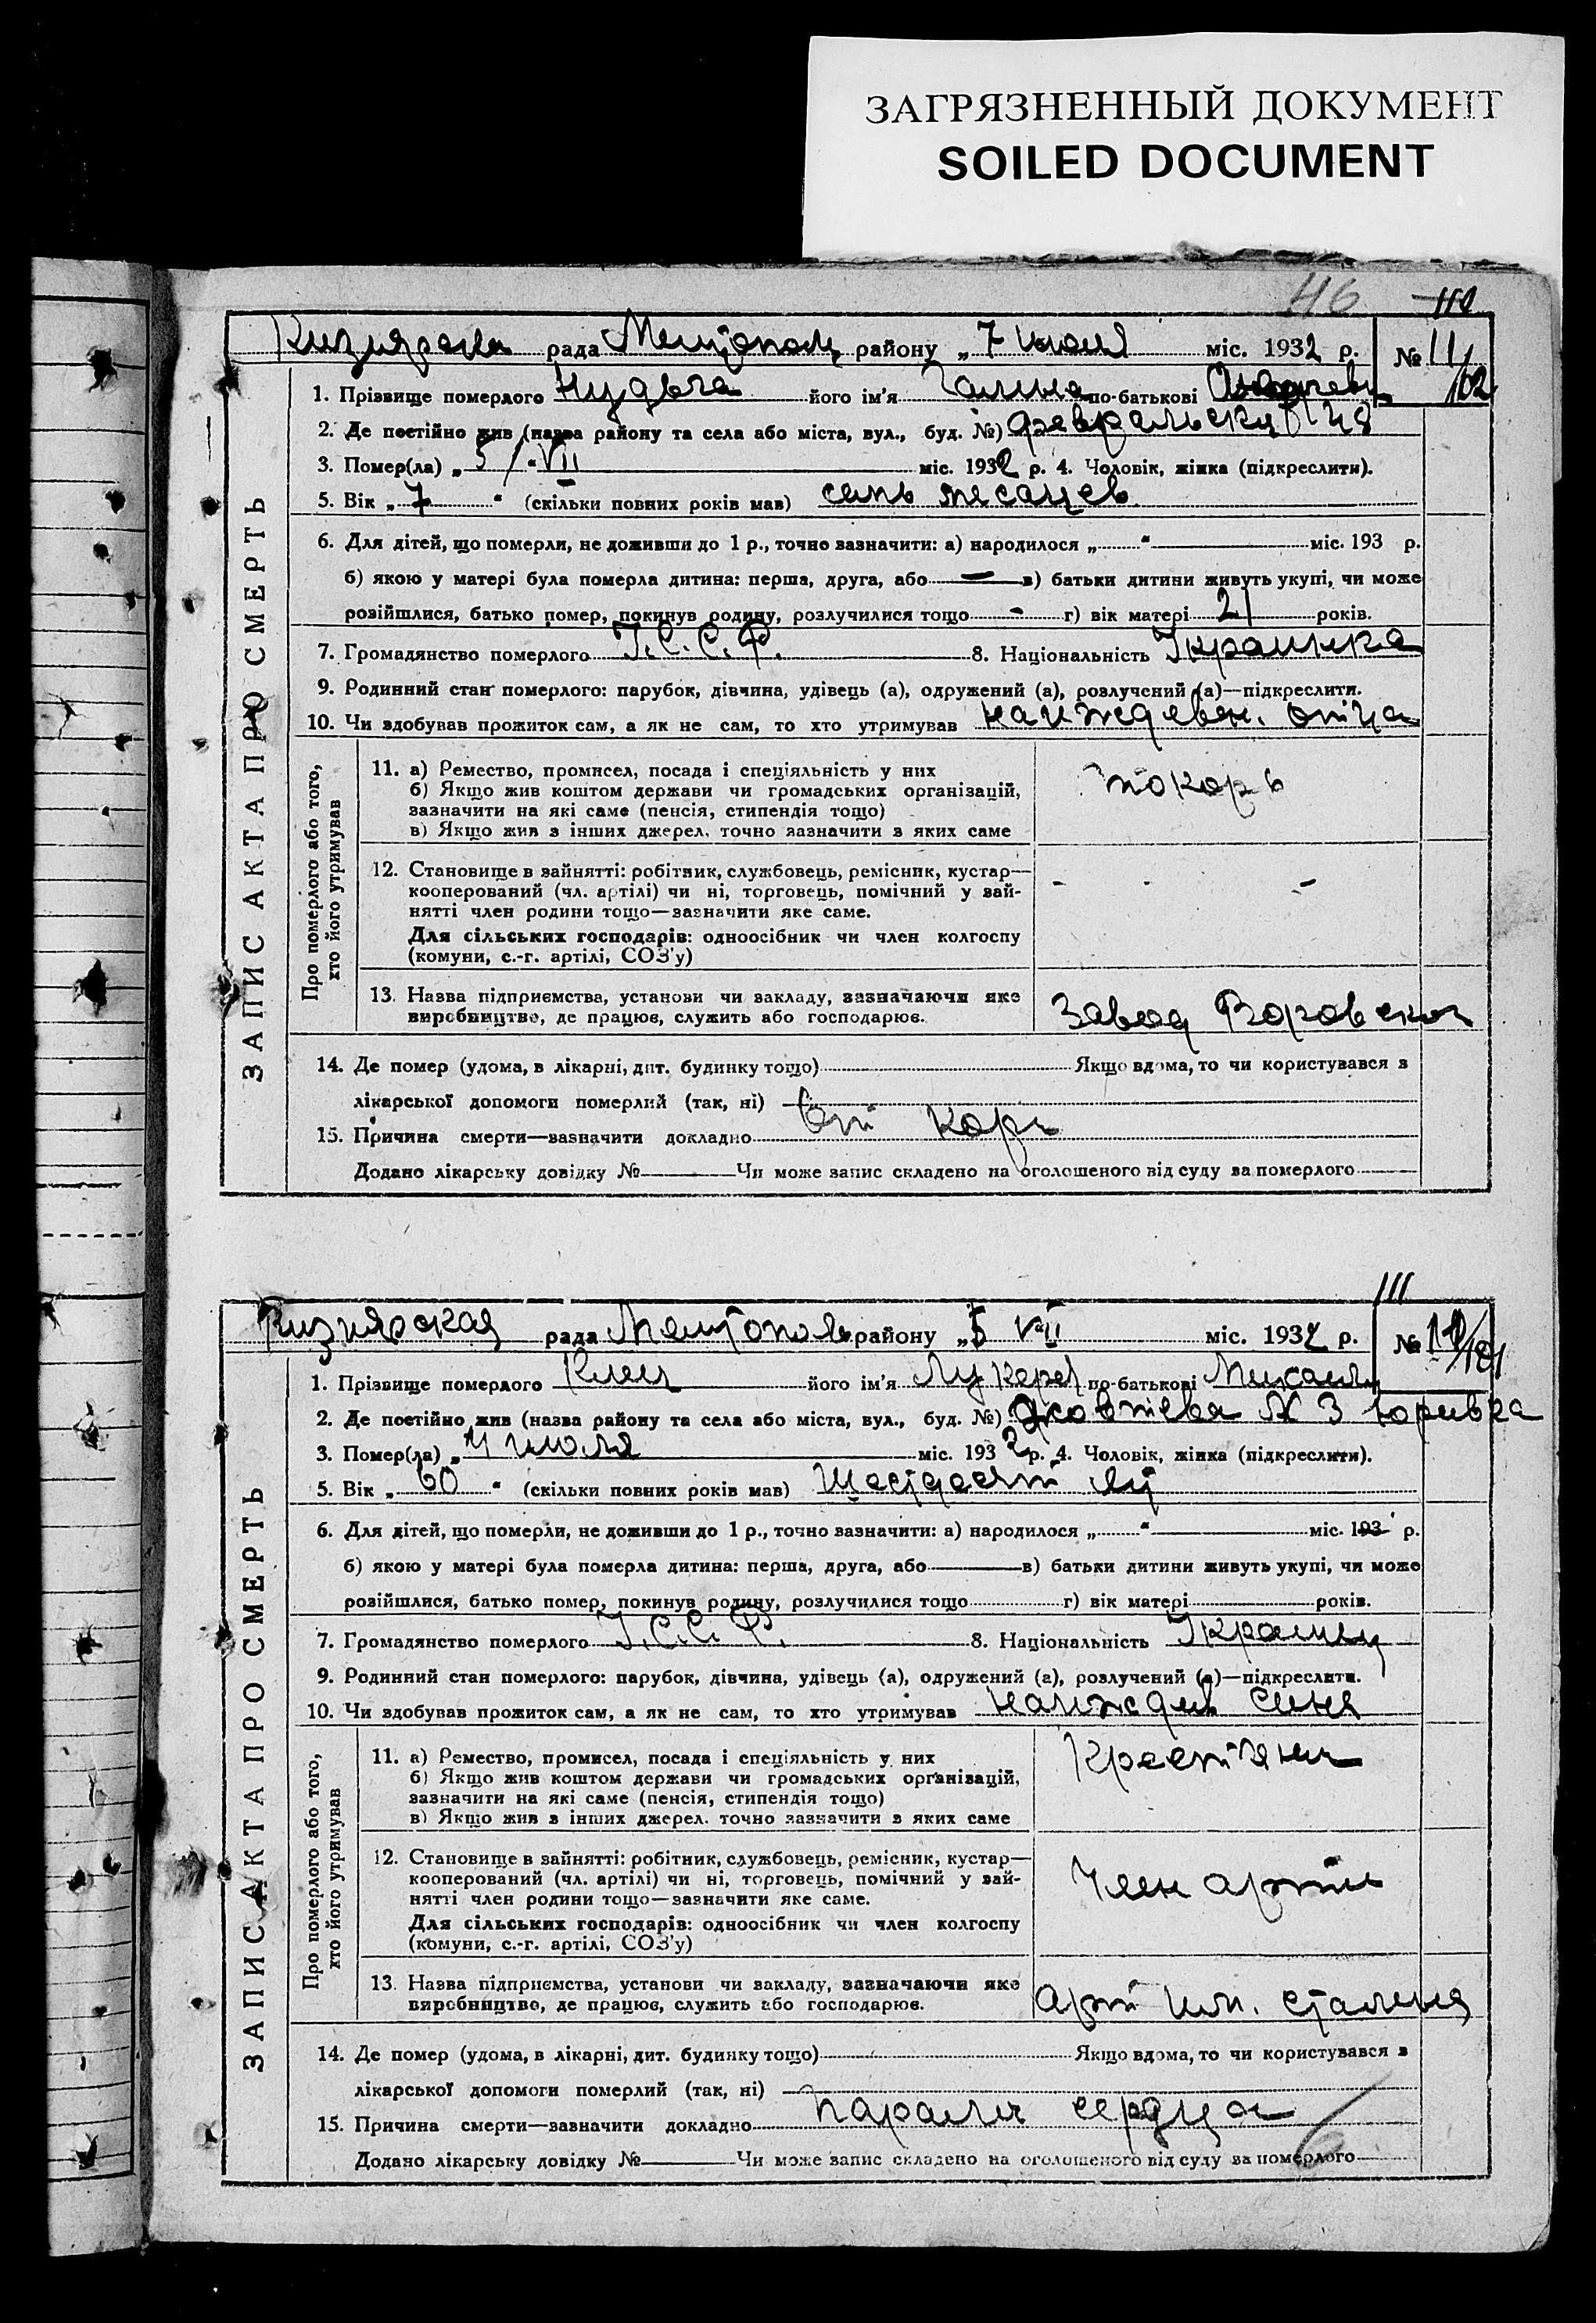 ЗАГРЯЗНЕННЫЙ ДОКУМЕНТ
SOILED DOCUMENT
46 110
рада района „ 7 июля міс. 1932 р. № 11/102
1. Прізвище померлого Нудьга його ім'я Галина по-батькові
2. Де постійно жив (назва району та села або міста, вул., буд. №)
3. Помер(ла) „ 5/“ VII міс. 1932 р. 4. Чоловік, жінка (підкреслити).
5. Вік „ 7 “ (скільки повних років мав) семь месацев
6. Для дітей, що померли, не доживши до 1 р., точно зазначити: а) народилося „ “ міс. 193 р.
б) якою у матері була померла дитина: перша, друга, або — в) батьки дитини живуть укупі, чи може
розійшлися, батько помер, покинув родину, розлучилися тощо - г) вік матері 21 років.
7. Громадянство померлого У.С.С.Р. 8. Національність Украинка
9. Родинний стан померлого: парубок, дівчина, удівець (а), одружений (а), розлучений (а)—підкреслити.
10. Чи здобував прожиток сам, а як не сам, то хто утримував на иждевен. отца
ЗАПИС АКТА ПРО СМЕРТЬ
Про померлого або того,
хто його утримував
11. а) Ремество, промисел, посада і спеціяльність у них
б) Якщо жив коштом держави чи громадських організацій,
зазначити на які саме (пенсія, стипендія тощо)
в) Якщо жив з інших джерел, точно зазначити з яких саме
токарь
12. Становище в зайнятті: робітник, службовець, ремісник, кустар—
кооперований (чл. артілі) чи ні, торговець, помічний у зай-
нятті член родини тощо—зазначити яке саме.
Для сільських господарів: одноосібник чи член колгоспу
(комуни, с.-г. артілі, СОЗ'у)
- - -
13. Назва підприємства, установи чи закладу, зазначаючи яке
виробництво, де працює, служить або господарює.
Завод Воровского
14. Де помер (удома, в лікарні, дит. будинку тощо) Якщо вдома, то чи користувався з
лікарської допомоги померлий (так, ні)
15. Причина смерти—зазначити докладно от кори
Додано лікарську довідку № Чи може запис складено на оголошеного від суду за померлого
111
Кизиярская рада Мелитополь району „ 5 VII міс. 1932 р. №
1. Прізвище померлого його ім'я Лукеря по-батькові
2. Де постійно жив (назва району та села або міста, вул., буд. №) Жовтнева № 3 Юривка
3. Помер(ла) „ 4 июля міс. 1932 р. 4. Чоловік, жінка (підкреслити).
5. Вік „ 60 “ (скільки повних років мав) Шестдесят лет
6. Для дітей, що померли, не доживши до 1 р., точно зазначити: а) народилося „ “ міс. 193 р.
б) якою у матері була померла дитина: перша, друга, або в) батьки дитини живуть укупі, чи може
розійшлися, батько помер, покинув родину, розлучилися тощо г) вік матері років.
7. Громадянство померлого У.С.С.Р. 8. Національність Украинец
9. Родинний стан померлого: парубок, дівчина, удівець (а), одружений (а), розлучений (а)—підкреслити.
10. Чи здобував прожиток сам, а як не сам, то хто утримував на иждив сина
ЗАПИС АКТА ПРО СМЕРТЬ
Про померлого або того,
хто його утримував
11. а) Ремество, промисел, посада і спеціяльність у них
б) Якщо жив коштом держави чи громадських організацій,
зазначити на які саме (пенсія, стипендія тощо)
в) Якщо жив з інших джерел, точно зазначити з яких саме
12. Становище в зайнятті: робітник, службовець, ремісник, кустар—
кооперований (чл. артілі) чи ні, торговець, помічний у зай-
нятті член родини тощо—зазначити яке саме.
Для сільських господарів: одноосібник чи член колгоспу
(комуни, с.-г. артілі, СОЗ'у)
Член артили
13. Назва підприємства, установи чи закладу, зазначаючи яке
виробництво, де працює, служить або господарює.
Арт им. Сталина
14. Де помер (удома, в лікарні, дит. будинку тощо) Якщо вдома, то чи користувався з
лікарської допомоги померлий (так, ні)
15. Причина смерти—зазначити докладно Паралич сердца
Додано лікарську довідку № Чи може запис складено на оголошеного від суду за померлого